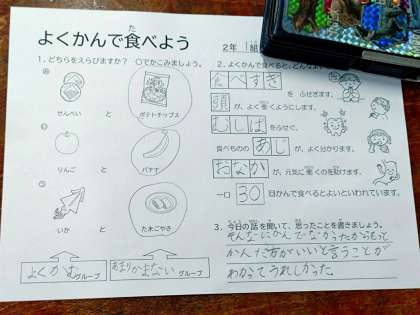 よくかんで食べよう
2年 1組
1. どちらをえらびますか? ○でかこみましょう。
せんべい と ポテトチップス
りんご と バナナ
いか と たまごやき
よくかむグループ
あまりかまないグループ
2. よくかんで食べると、どんな
食べすぎ を ふせぎます。
頭 が、よく働くようにします。
むしば をふせぐ。
食べものの あじ が、よく分かります。
おなか が、元気に働くのを助けます。
一口 30 回かんで食べるとよいといわれています。
3. 今日の話を聞いて、思ったことを書きましょう。
そんなにかんでなかったからもっと
かんだ方がいいと言うことが
わかってうれしかった。